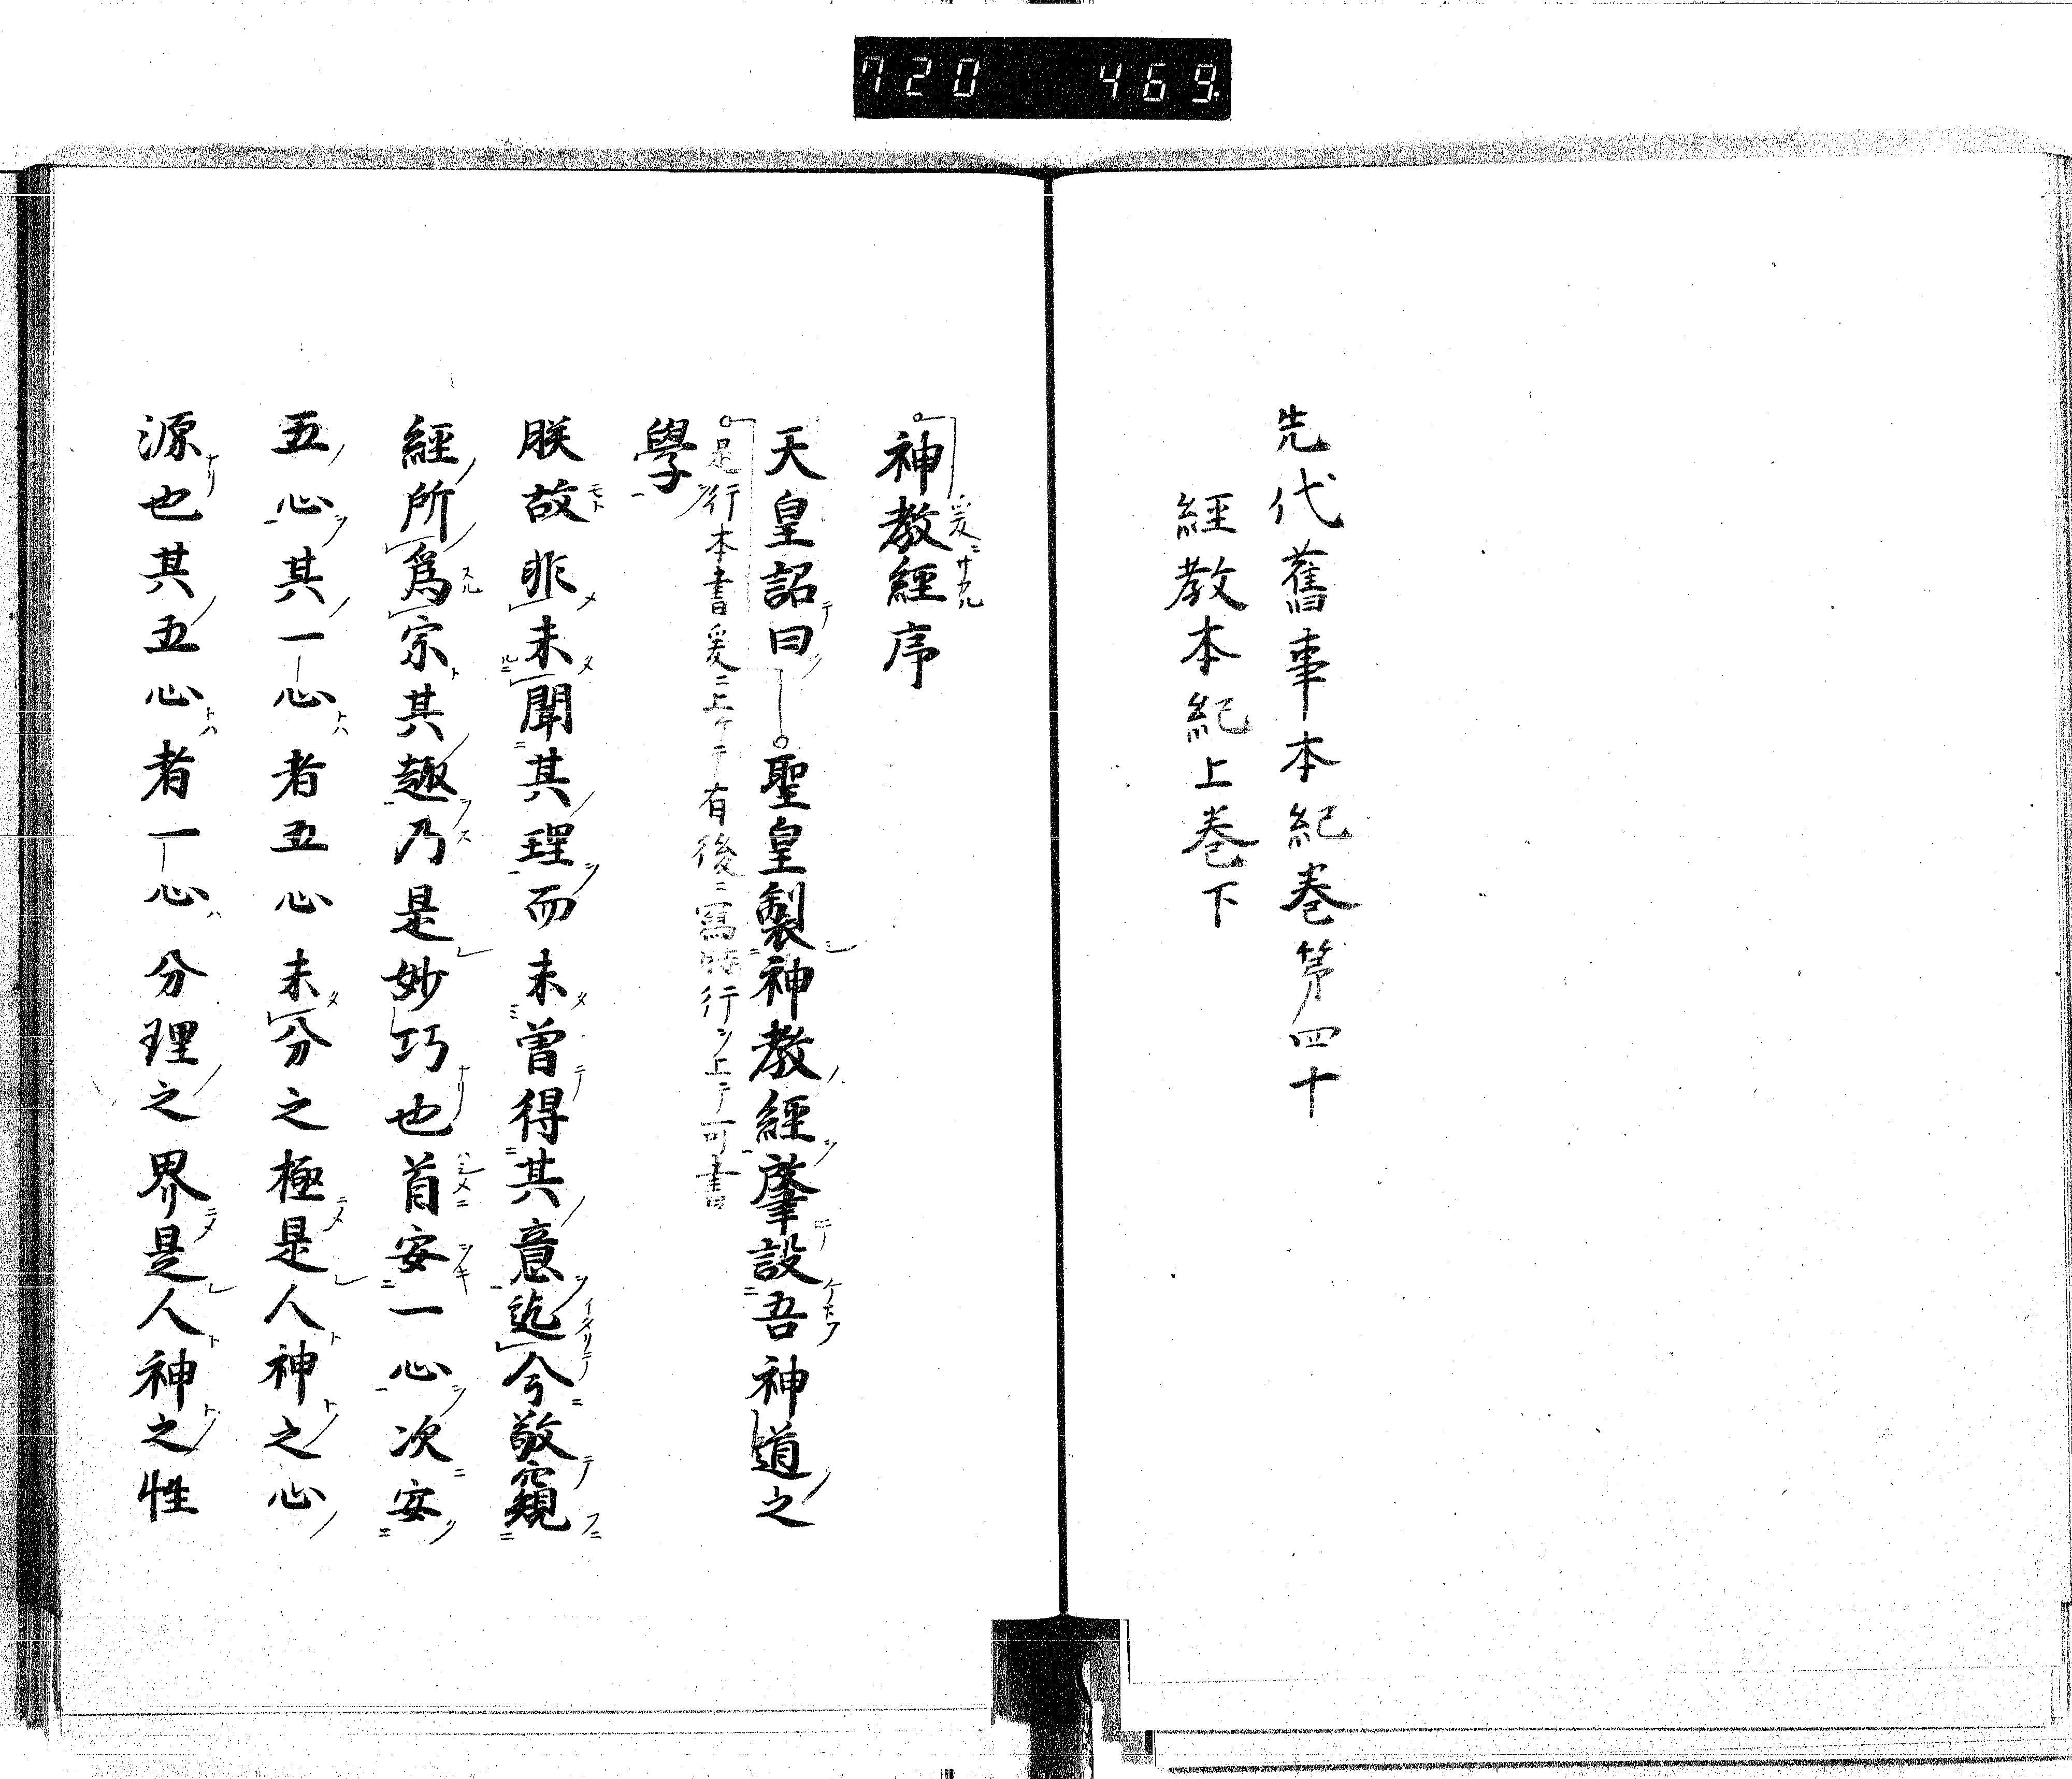 720 469
先代舊事本紀巻第四十
經教本紀上巻下
神教經序
天皇詔曰聖皇製神教經肇設吾神道之
是行本書爰ニ上ケテ有後ニ寫時行ヲ上テ可書
學
朕故非未聞其理而未曽得其意迄今敬窺
經所爲宗其趣乃是妙巧也首安一心次安
五心其一心者五心未分之極是人神之心
源也其五心者一心分理之界是人神之性